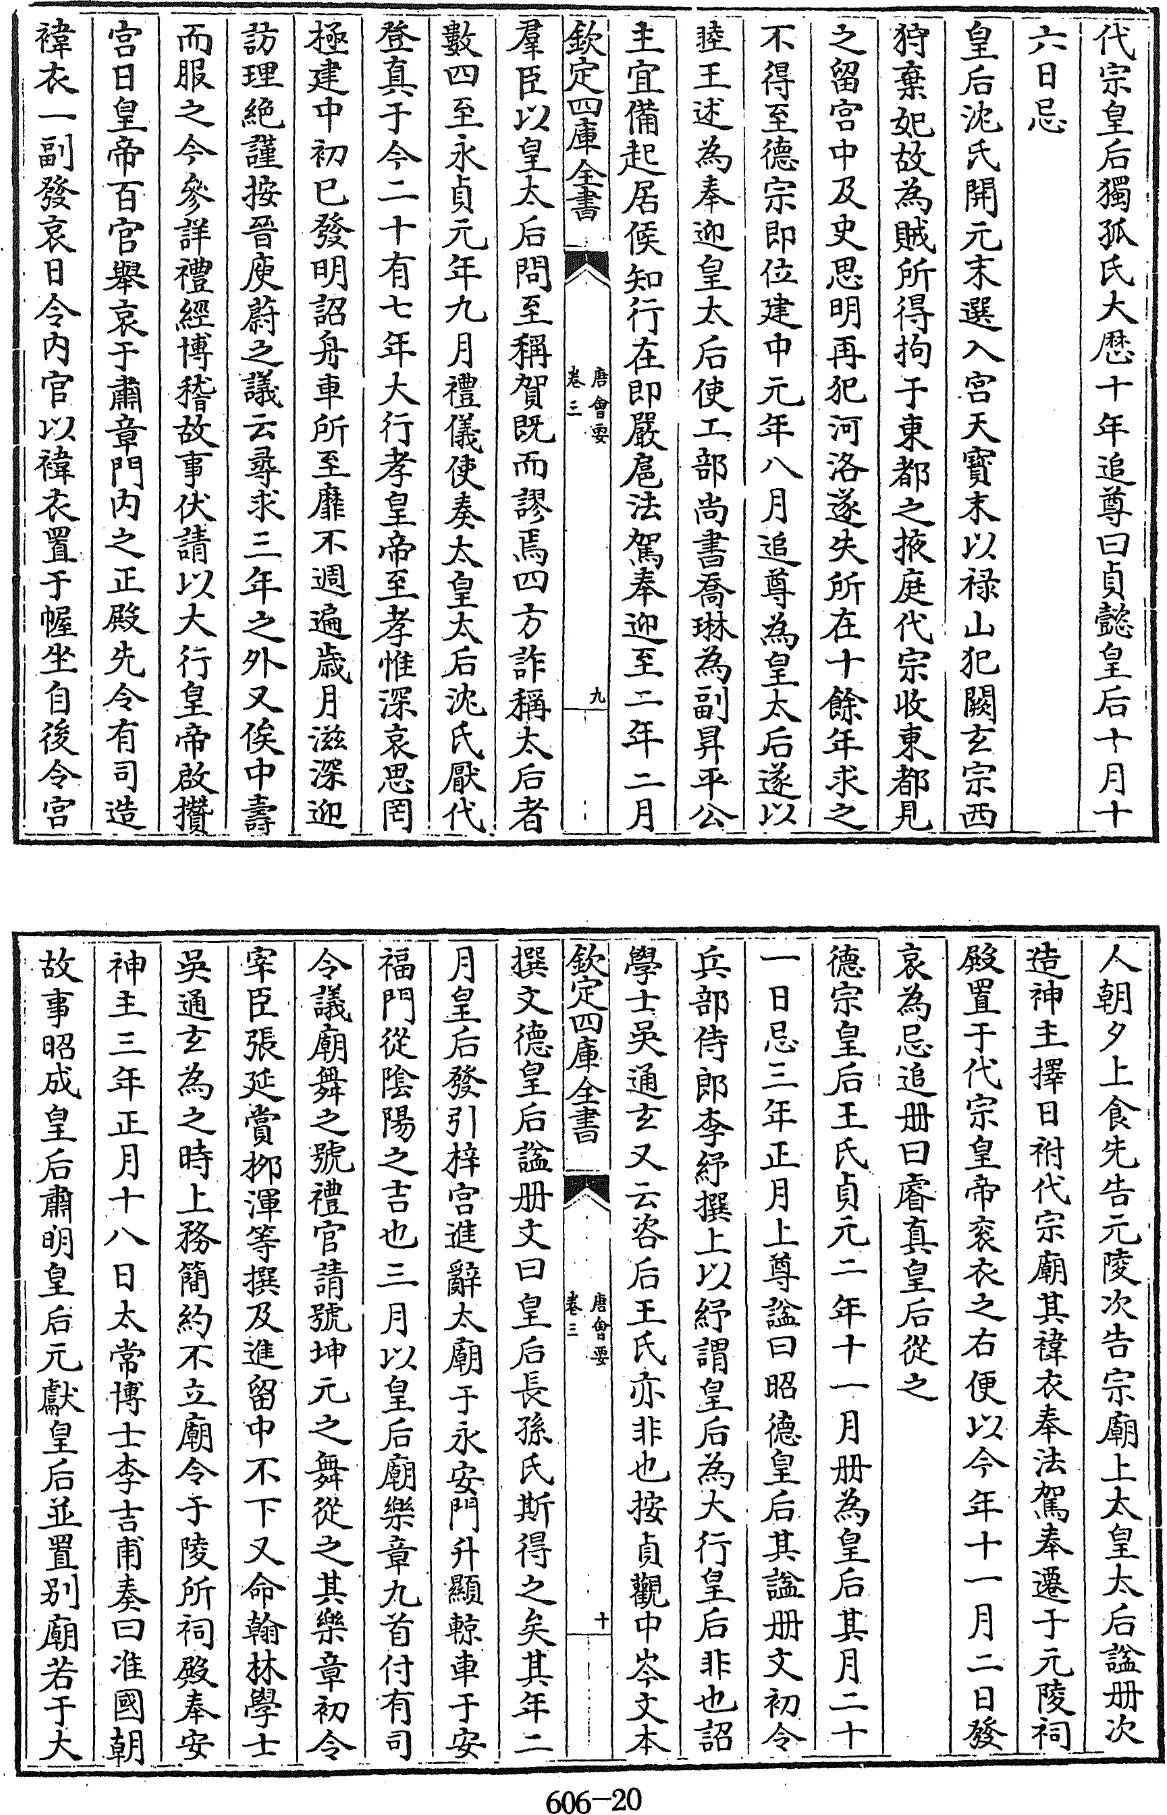 代宗皇后獨孤氏大厯十年追尊曰貞懿皇后十月十
六日忌
皇后沈氏開元末選入宫天寳末以禄山犯闕玄宗西
狩棄妃故為賊所得拘于東都之掖庭代宗收東都見
之留宫中及史思明再犯河洛遂失所在十餘年求之
不得至德宗即位建中元年八月追尊為皇太后遂以
睦王述為奉迎皇太后使工部尚書喬琳為副昇平公
主宜備起居候知行在即嚴扈法駕奉迎至二年二月
欽定四庫全書
唐會要
卷三
九
羣臣以皇太后問至稱賀既而謬焉四方詐稱太后者
數四至永貞元年九月禮儀使奏太皇太后沈氏厭代
登真于今二十有七年大行孝皇帝至孝惟深哀思罔
極建中初已發明詔舟車所至靡不週遍歳月滋深迎
訪理絶謹按晉庾蔚之議云尋求三年之外又俟中壽
而服之今參詳禮經博稽故事伏請以大行皇帝啟攢
宫日皇帝百官舉哀于肅章門内之正殿先令有司造
褘衣一副發哀日令内官以褘衣置于幄坐自後令宫
人朝夕上食先告元陵次告宗廟上太皇太后諡册次
造神主擇日祔代宗廟其褘衣奉法駕奉遷于元陵祠
殿置于代宗皇帝衮衣之右便以今年十一月二日發
哀為忌追册曰睿真皇后從之
德宗皇后王氏貞元二年十一月册為皇后其月二十
一日忌三年正月上尊諡曰昭德皇后其諡册文初令
兵部侍郎李紓撰上以紓謂皇后為大行皇后非也詔
學士吳通玄又云咨后王氏亦非也按貞觀中岑文本
欽定四庫全書
唐會要
卷三
十
撰文德皇后諡册文曰皇后長孫氏斯得之矣其年二
月皇后發引梓宫進辭太廟于永安門升顯輬車于安
福門從陰陽之吉也三月以皇后廟樂章九首付有司
令議廟舞之號禮官請號坤元之舞從之其樂章初令
宰臣張延賞栁渾等撰及進留中不下又命翰林學士
吳通玄為之時上務簡約不立廟令于陵所祠殿奉安
神主三年正月十八日太常博士李吉甫奏曰准國朝
故事昭成皇后肅明皇后元獻皇后並置别廟若于大
606-20